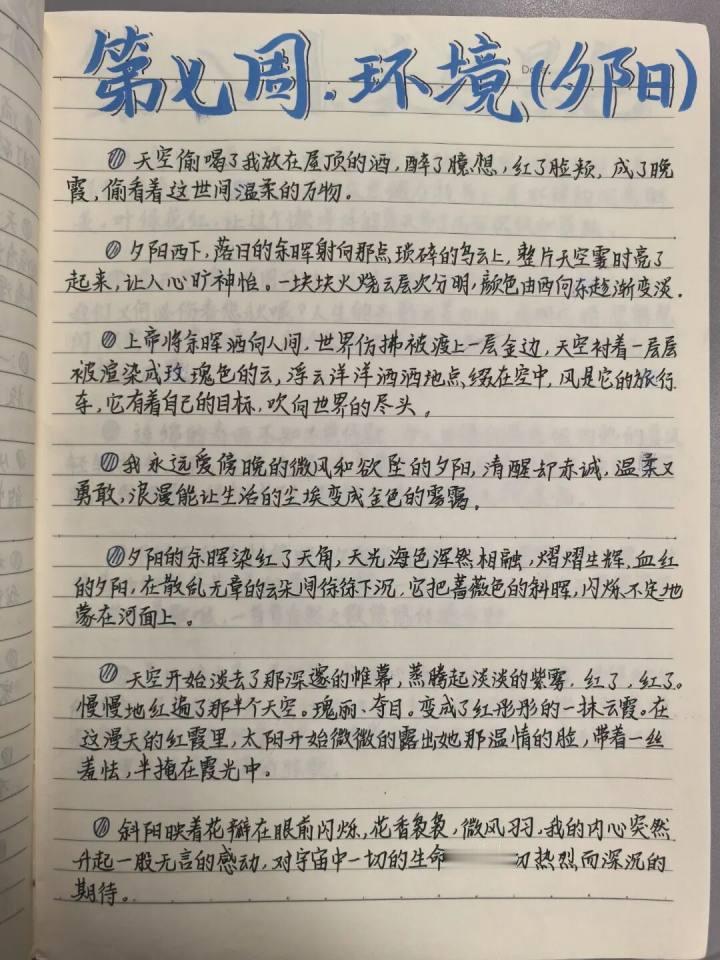 第七周.环境(夕阳)
Date.
天空偷喝了我放在屋顶的酒,醉了臆想,红了脸颊,成了晚
霞,偷看着这世间温柔的万物。
夕阳西下,落日的余晖射向那点琐碎的乌云上,整片天空霎时亮了
起来,让人心旷神怡。一块块火烧云层次分明,颜色由西向东越渐变淡.
上帝将余晖洒向人间,世界仿拂被渡上一层金边,天空衬着一层层
被渲染成玫瑰色的云,浮云洋洋洒洒地点缀在空中,风是它的旅行
车,它有着自己的目标,吹向世界的尽头。
我永远爱傍晚的微风和欲坠的夕阳,清醒却赤诚,温柔又
勇敢,浪漫能让生活的尘埃变成金色的雾霭。
夕阳的余晖染红了天角,天光海色浑然相融,熠熠生辉,血红
的夕阳,在散乱无章的云朵间徐徐下沉,它把蔷薇色的斜晖,闪烁不定地
蒙在河面上。
天空开始淡去了那深邃的帷幕,蒸腾起淡淡的紫雾.红了,红了。
慢慢地红遍了那半个天空。瑰丽、夺目.变成了红彤彤的一抹云霞。在
这漫天的红霞里,太阳开始微微的露出她那温情的脸,带着一丝
羞怯,半掩在霞光中。
斜阳映着花瓣在眼前闪烁,花香袅袅,微风习习,我的内心突然
升起一股无言的感动,对宇宙中一切的生命 热烈而深沉的
期待。